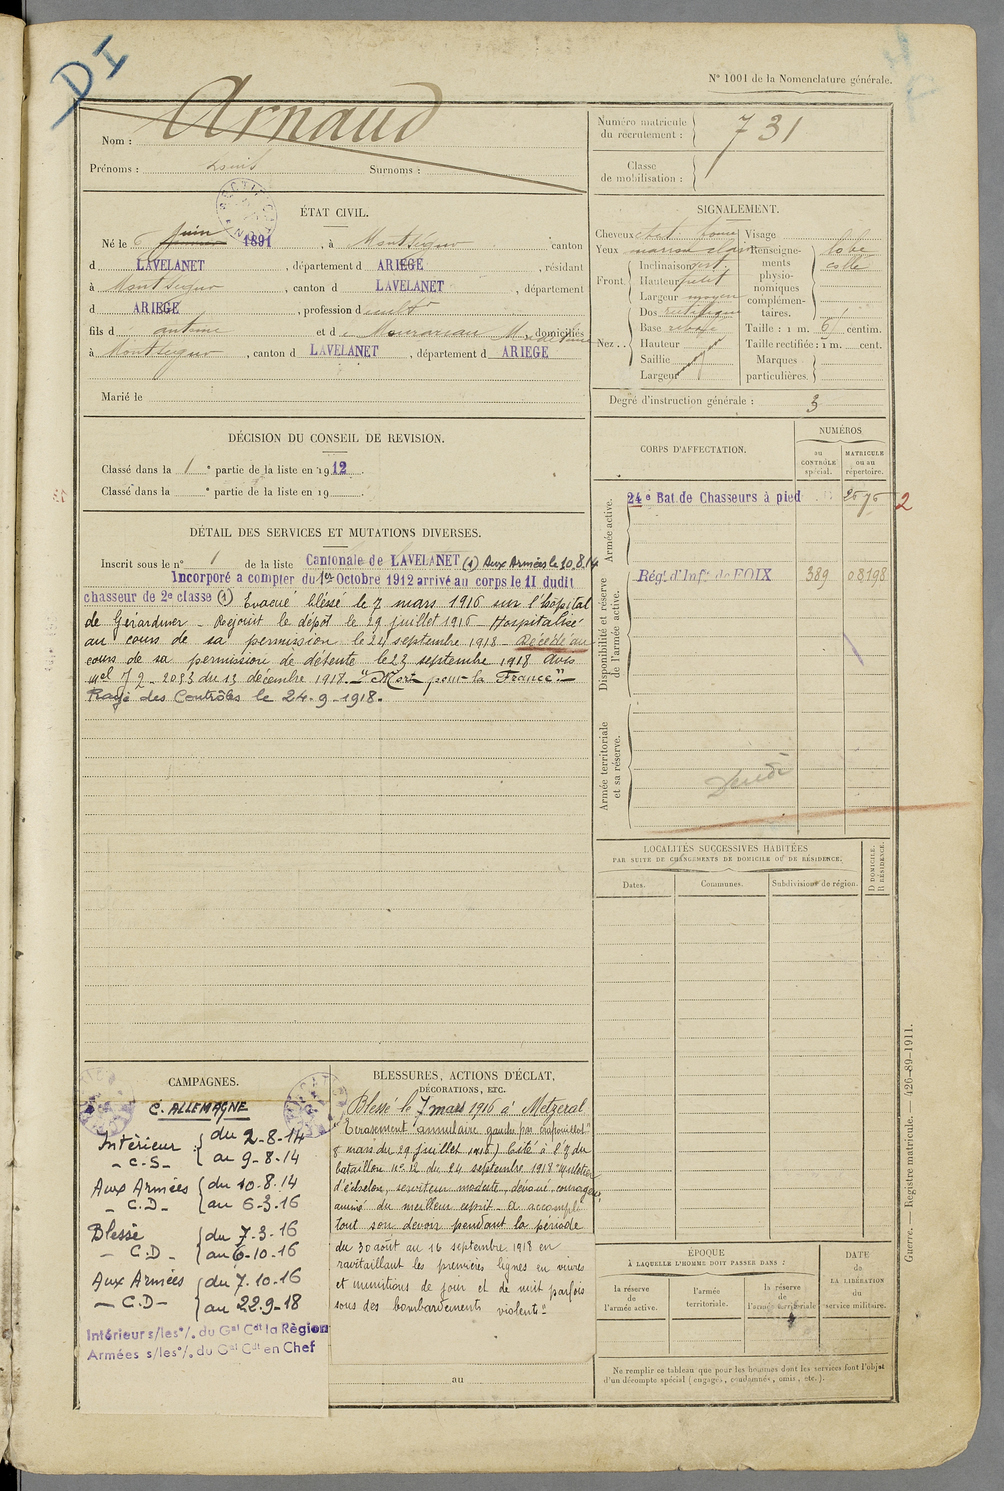 DI
N° 1001 de la Nomenclature générale.
Nom : Arnaud
Prénoms : Louis Surnoms :
Numéro matricule
du recrutement : 731
Classe
de mobilisation :
ÉTAT CIVIL.
Né le 6 juin 1891, à Montségur canton
d LAVELANET, département d ARIEGE, résidant
à Montségur, canton d LAVELANET, département
d ARIEGE, profession d cult
fils d antoine et d domiciliés
à Montségur, canton d LAVELANET, département d ARIEGE
Marié le
SIGNALEMENT.
Cheveux chat Visage
Yeux marron clair Renseigne-
ments
physio-
nomiques
complémen-
taires.
lobe
collé
Front.
Inclinaison
Hauteur petit
Largeur moyen
Nez..
Dos rectiligne
Base
Hauteur
Saillie
Largeur
Taille : 1 m. 61 centim.
Taille rectifiée : 1 m. cent.
Marques
particulières.
Degré d'instruction générale : 3
DÉCISION DU CONSEIL DE REVISION.
Classé dans la 1e partie de la liste en 1912.
Classé dans la e partie de la liste en 19
DÉTAIL DES SERVICES ET MUTATIONS DIVERSES.
Inscrit sous le n° 1 de la liste Cantonale de LAVELANET (1) Aux Armées le 10.8.14
Incorporé a compter du 1er Octobre 1912 arrivé au corps le 11 dudit
chasseur de 2e classe (1) Evacué blessé le 7 mars 1916 sur l'hôpital
de Gérardmer - Rejoint le dépôt le 29 juillet 1916 - Hospitalisé
au cours de sa permission le 24 septembre 1918 - Décédé au
cours de sa permission de détente le 23 septembre 1918 Avis
du 13 décembre 1918 - "Mort pour la France" -
Rayé des Contrôles le 24-9-1918.
CORPS D'AFFECTATION.
NUMÉROS
au
CONTRÔLE
spécial.
MATRICULE
ou au
répertoire.
Armée active.
24e Bat. de Chasseurs à pied 2676 2
Disponibilité et réserve
de l'armée active.
Régt. d'Infie de FOIX 389 08198
Armée territoriale
et sa réserve.
LOCALITÉS SUCCESSIVES HABITÉES
PAR SUITE DE CHANGEMENTS DE DOMICILE OU DE RÉSIDENCE.
Dates.
Communes.
Subdivisions de région.
D DOMICILE.
R RÉSIDENCE.
CAMPAGNES.
C. ALLEMAGNE
Intérieur du 2-8-14
- C.S - au 9-8-14
Aux Armées du 10-8-14
- C.D - au 6-3-16
Blessé du 7-3-16
- C.D - au 6-10-16
Aux Armées du 7-10-16
- C.D - au 22-9-18
Intérieur s/les °/. du Gal Cdt la Région
Armées s/les °/. du Gal Cdt en Chef
BLESSURES, ACTIONS D'ÉCLAT,
DÉCORATIONS, ETC.
Blessé le 7 mars 1916 à Metzeral
"Ecrasement annulaire gauche par crapouillot"
8 mars du 29 juillet 1916) Cité à l'O. du
bataillon n° 12 du 24 septembre 1918 "muletier
d'échelon, serviteur modeste, dévoué, courageux,
animé du meilleur esprit - A accompli
tout son devoir pendant la période
du 30 août au 16 septembre 1918 en
ravitaillant les premières lignes en vivres
et munitions de jour et de nuit parfois
sous des bombardements violents"
au
ÉPOQUE
À LAQUELLE L'HOMME DOIT PASSER DANS :
la réserve
de
l'armée active.
l'armée
territoriale.
la réserve
de
l'armée territoriale
DATE
de
LA LIBÉRATION
du
service militaire.
Ne remplir ce tableau que pour les hommes dont les services font l'objet
d'un décompte spécial (engagés, condamnés, omis, etc.).
Guerre. — Registre matricule. — 426-89-1911.